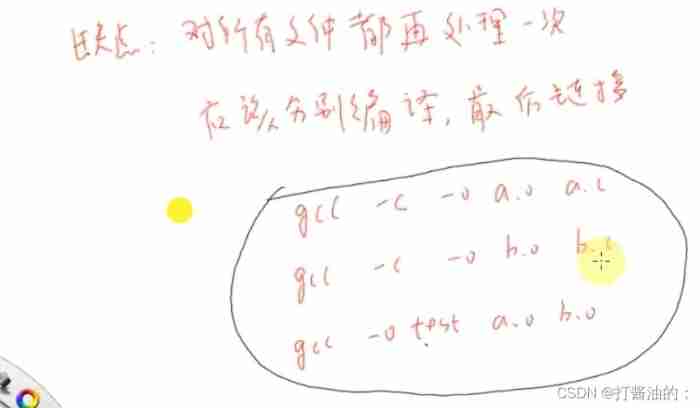 缺点：对所有文件都再处理一次
应该分别编译，最后链接
gcc -c -o a.o a.c
gcc -c -o b.o b.c
gcc -o test a.o b.o
CSDN @打酱油的；